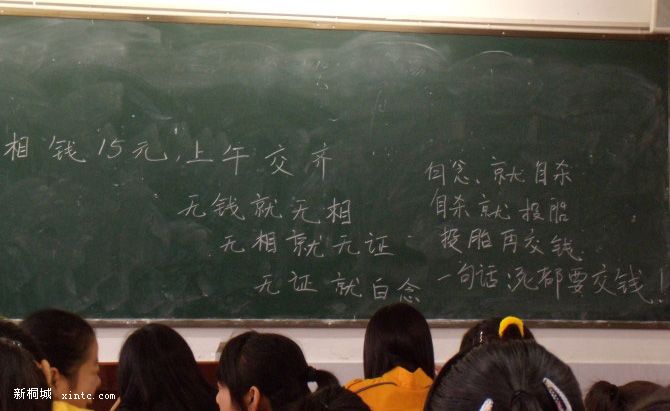 相钱15元,上午交齐
无钱就无相
无相就无证
无证就白念
白念、就自杀
自杀就投胎
投胎再交钱
一句话:死都要交钱!
新桐城 xintc.com